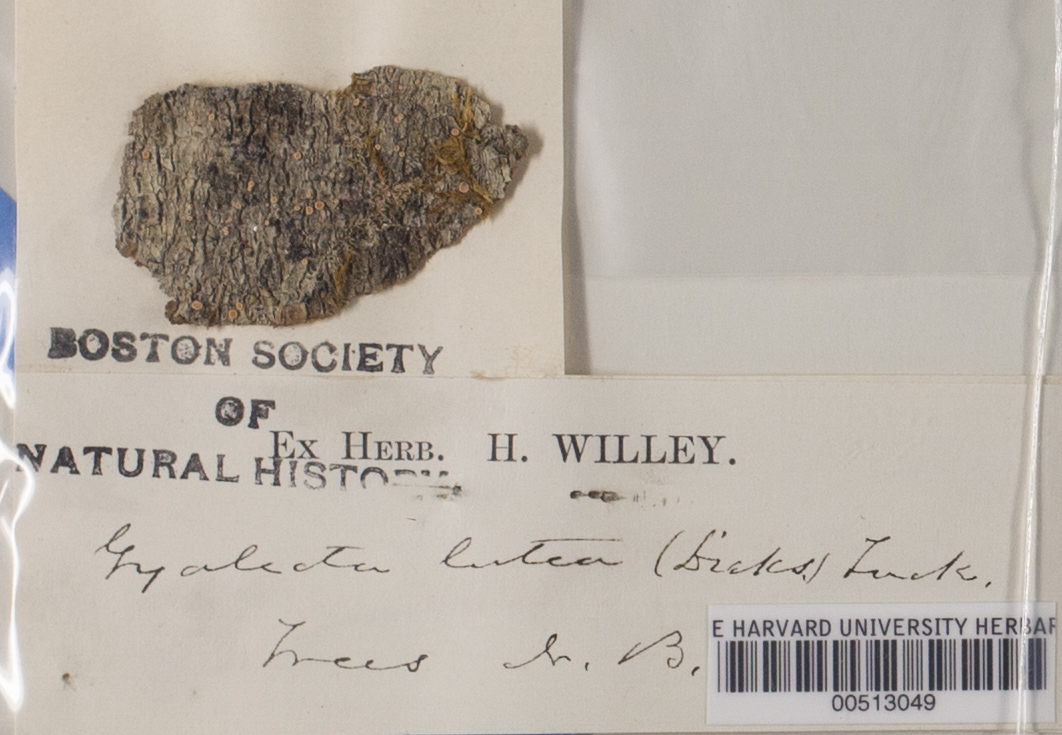 BOSTON SOCIETY
OF
NATURAL HISTORY.
Ex Herb. H. WILLEY.
Gyalecta lutea (Dicks.) Tuck.
Trees N. B.
E HARVARD UNIVERSITY HERBAR
00513049